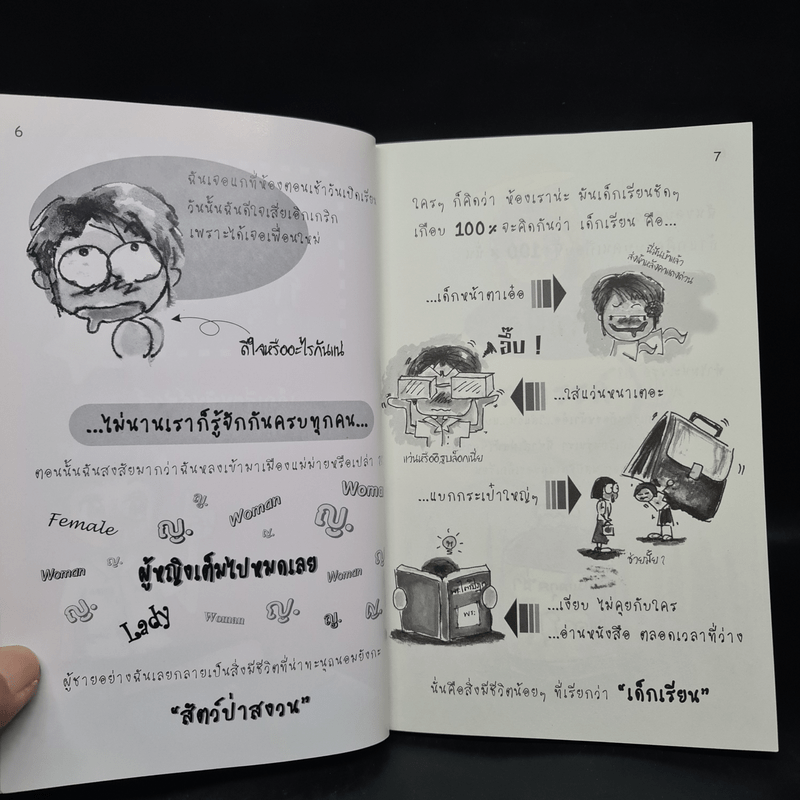 6
ฉันเจอแกที่ห้องตอนเช้าวันเปิดเรียน
วันนั้นฉันดีใจเสียเอิกเกริก
เพราะได้เจอเพื่อนใหม่
ดีใจหรืออะไรกันแน่
...ไม่นานเราก็รู้จักกันครบทุกคน...
ตอนนั้นฉันสงสัยมากว่าฉันหลงเข้ามาเมืองแม่ม่ายหรือเปล่า
Female
ญ.
ญ.
Woman
ญ.
ญ.
Woma
Woman
ญ.
ผู้หญิงเต็มไปหมดเลย
Woman
ญ.
ญ.
Lady
Woman
ญ.
ญ.
ญ.
ผู้ชายอย่างฉันเลยกลายเป็นสิ่งมีชีวิตที่น่าทะนุถนอมยังกะ
"สัตว์ป่าสงวน"
7
ใครๆ ก็คิดว่า ห้องเราน่ะ มันเด็กเรียนชัดๆ
เกือบ 100% จะคิดกันว่า เด็กเรียน คือ...
...เด็กหน้าตาเอ๋อ
อึ๊บ !
...ใส่แว่นหนาเตอะ
แว่นหรืออิฐบล็อกเนี่ย
...แบกกระเป๋าใหญ่ๆ
ช่วยมั้ย ?
...เงียบ ไม่คุยกับใคร
...อ่านหนังสือ ตลอดเวลาที่ว่าง
นั่นคือสิ่งมีชีวิตน้อยๆ ที่เรียกว่า "เด็กเรียน"